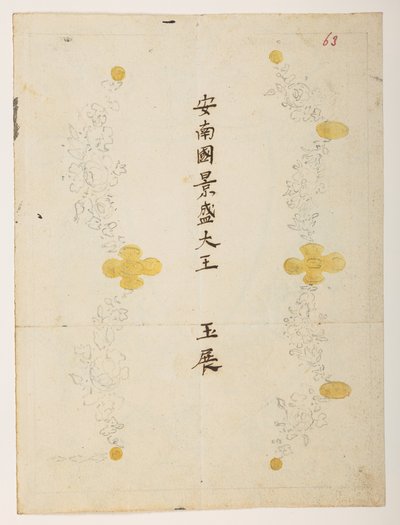 63
安南國景盛大王 玉展